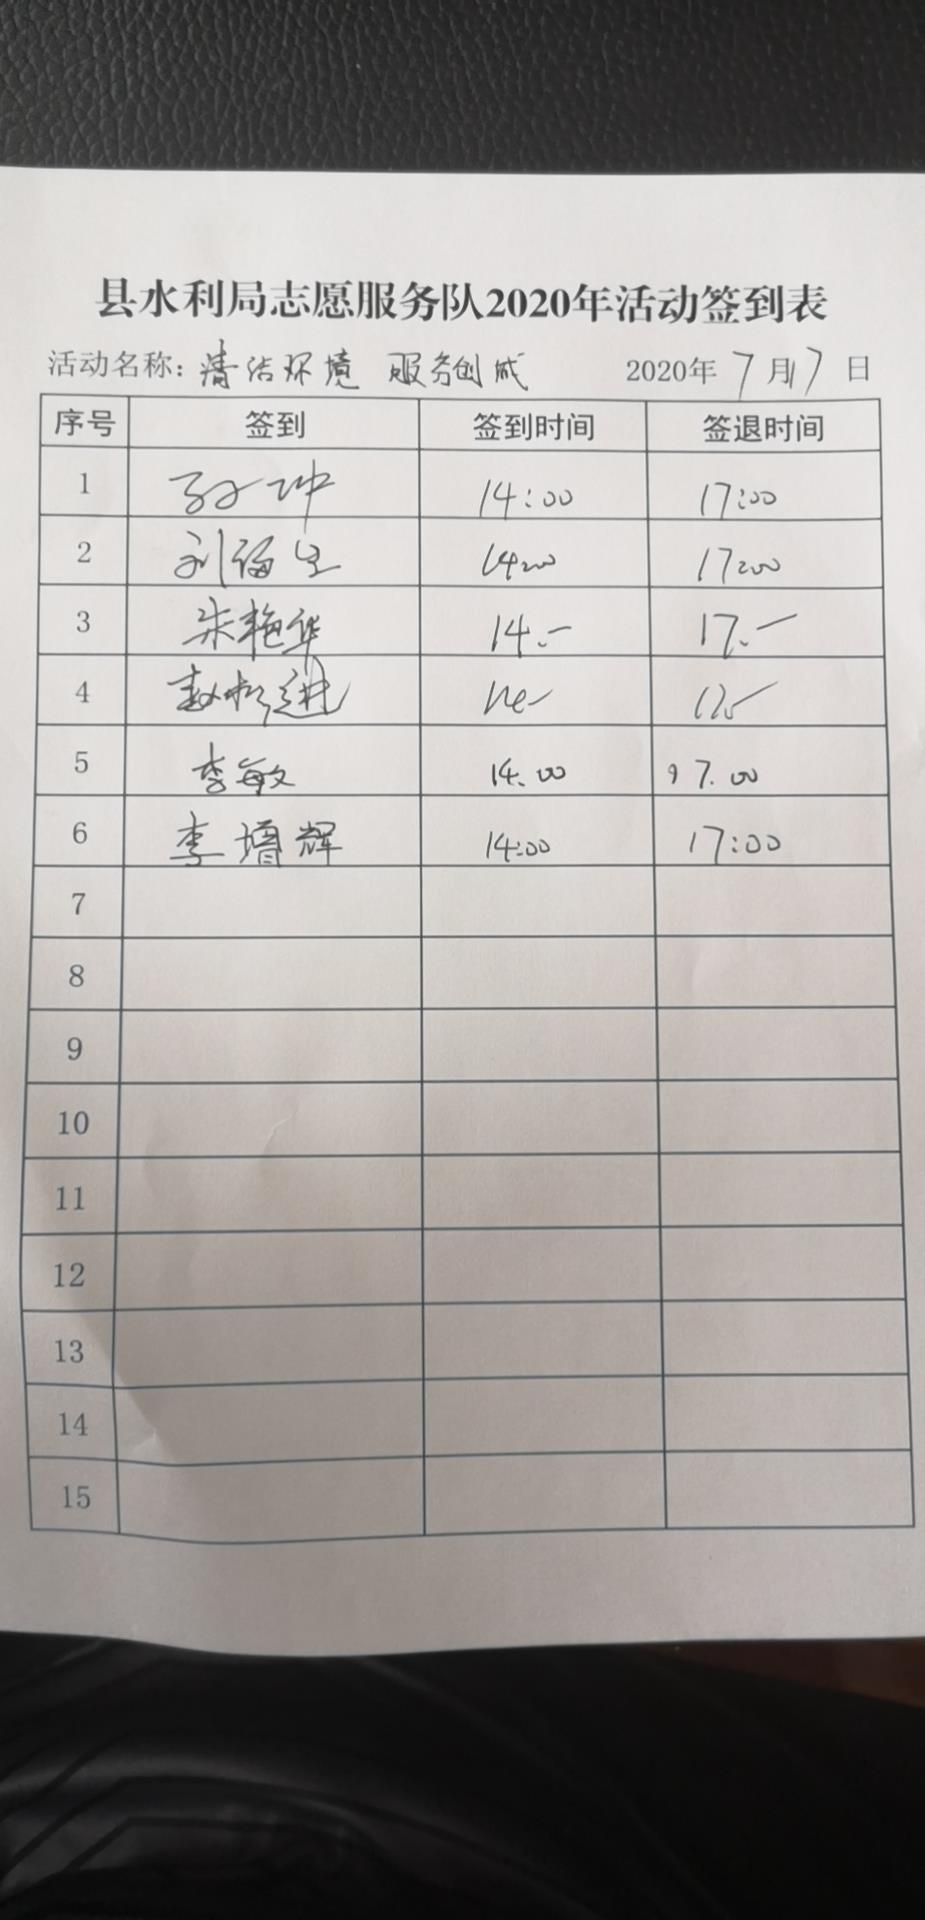 县水利局志愿服务队2020年活动签到表
活动名称：清洁环境 服务创城 2020年7月17日
序号 签到 签到时间 签退时间
1 孙坤 14:00 17:00
2 刘福生 14:00 17:00
3 朱艳华 14.- 17.-
4
5 李敏 14.00 17.00
6 李增辉 14:00 17:00
7
8
9
10
11
12
13
14
15